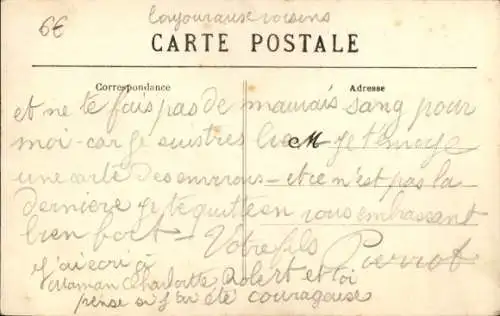 6€
CARTE POSTALE
Correspondance
Adresse
et ne te fais pas de mauvais sang pour
moi - car je suis tres bien M je t'envoye
une carte des environs - et ce n'est pas la
derniere je te quitte en vous embrassant
bien fort - Votre fils Pierrot
j'ai écri à
maman Charlotte Robert et toi
pense si j'ai été courageuse